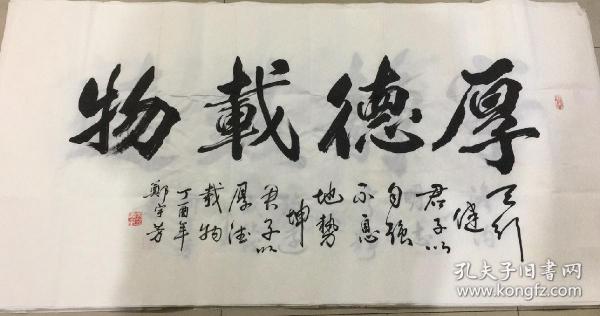 厚德載物
天行
健
君子以
自強
不息
地勢
坤
君子以
厚德
载物
丁酉年
鄭宇芳
孔夫子旧書网
www.kongfz.com